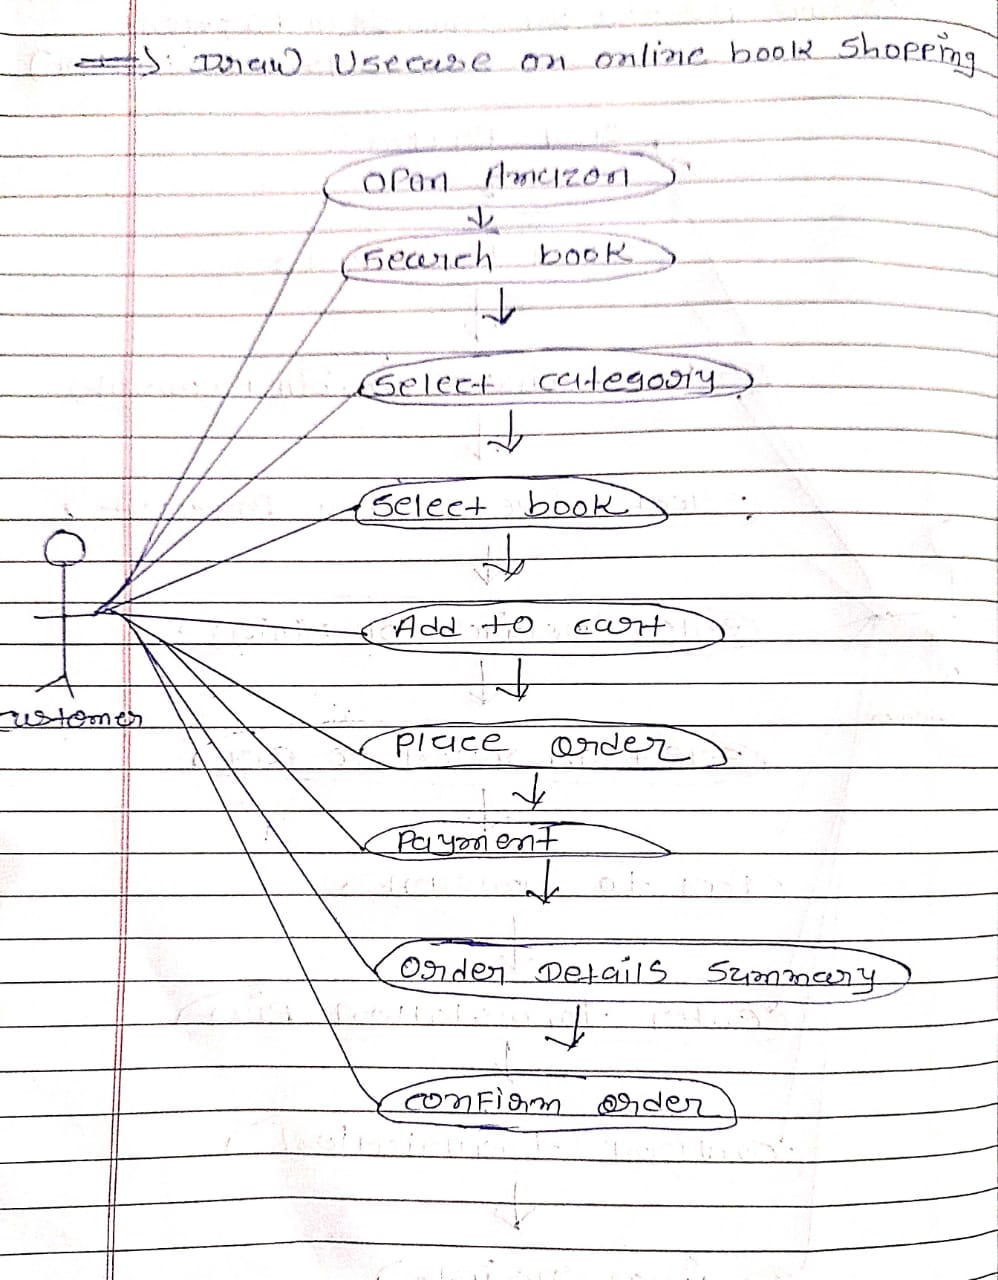 ⇒ : Draw Usecase on online book shopping
Open Amazon
Search book
Select category
Select book
Add to cart
ustomer
Place order
Payment
Order Details Summary
Confirm order